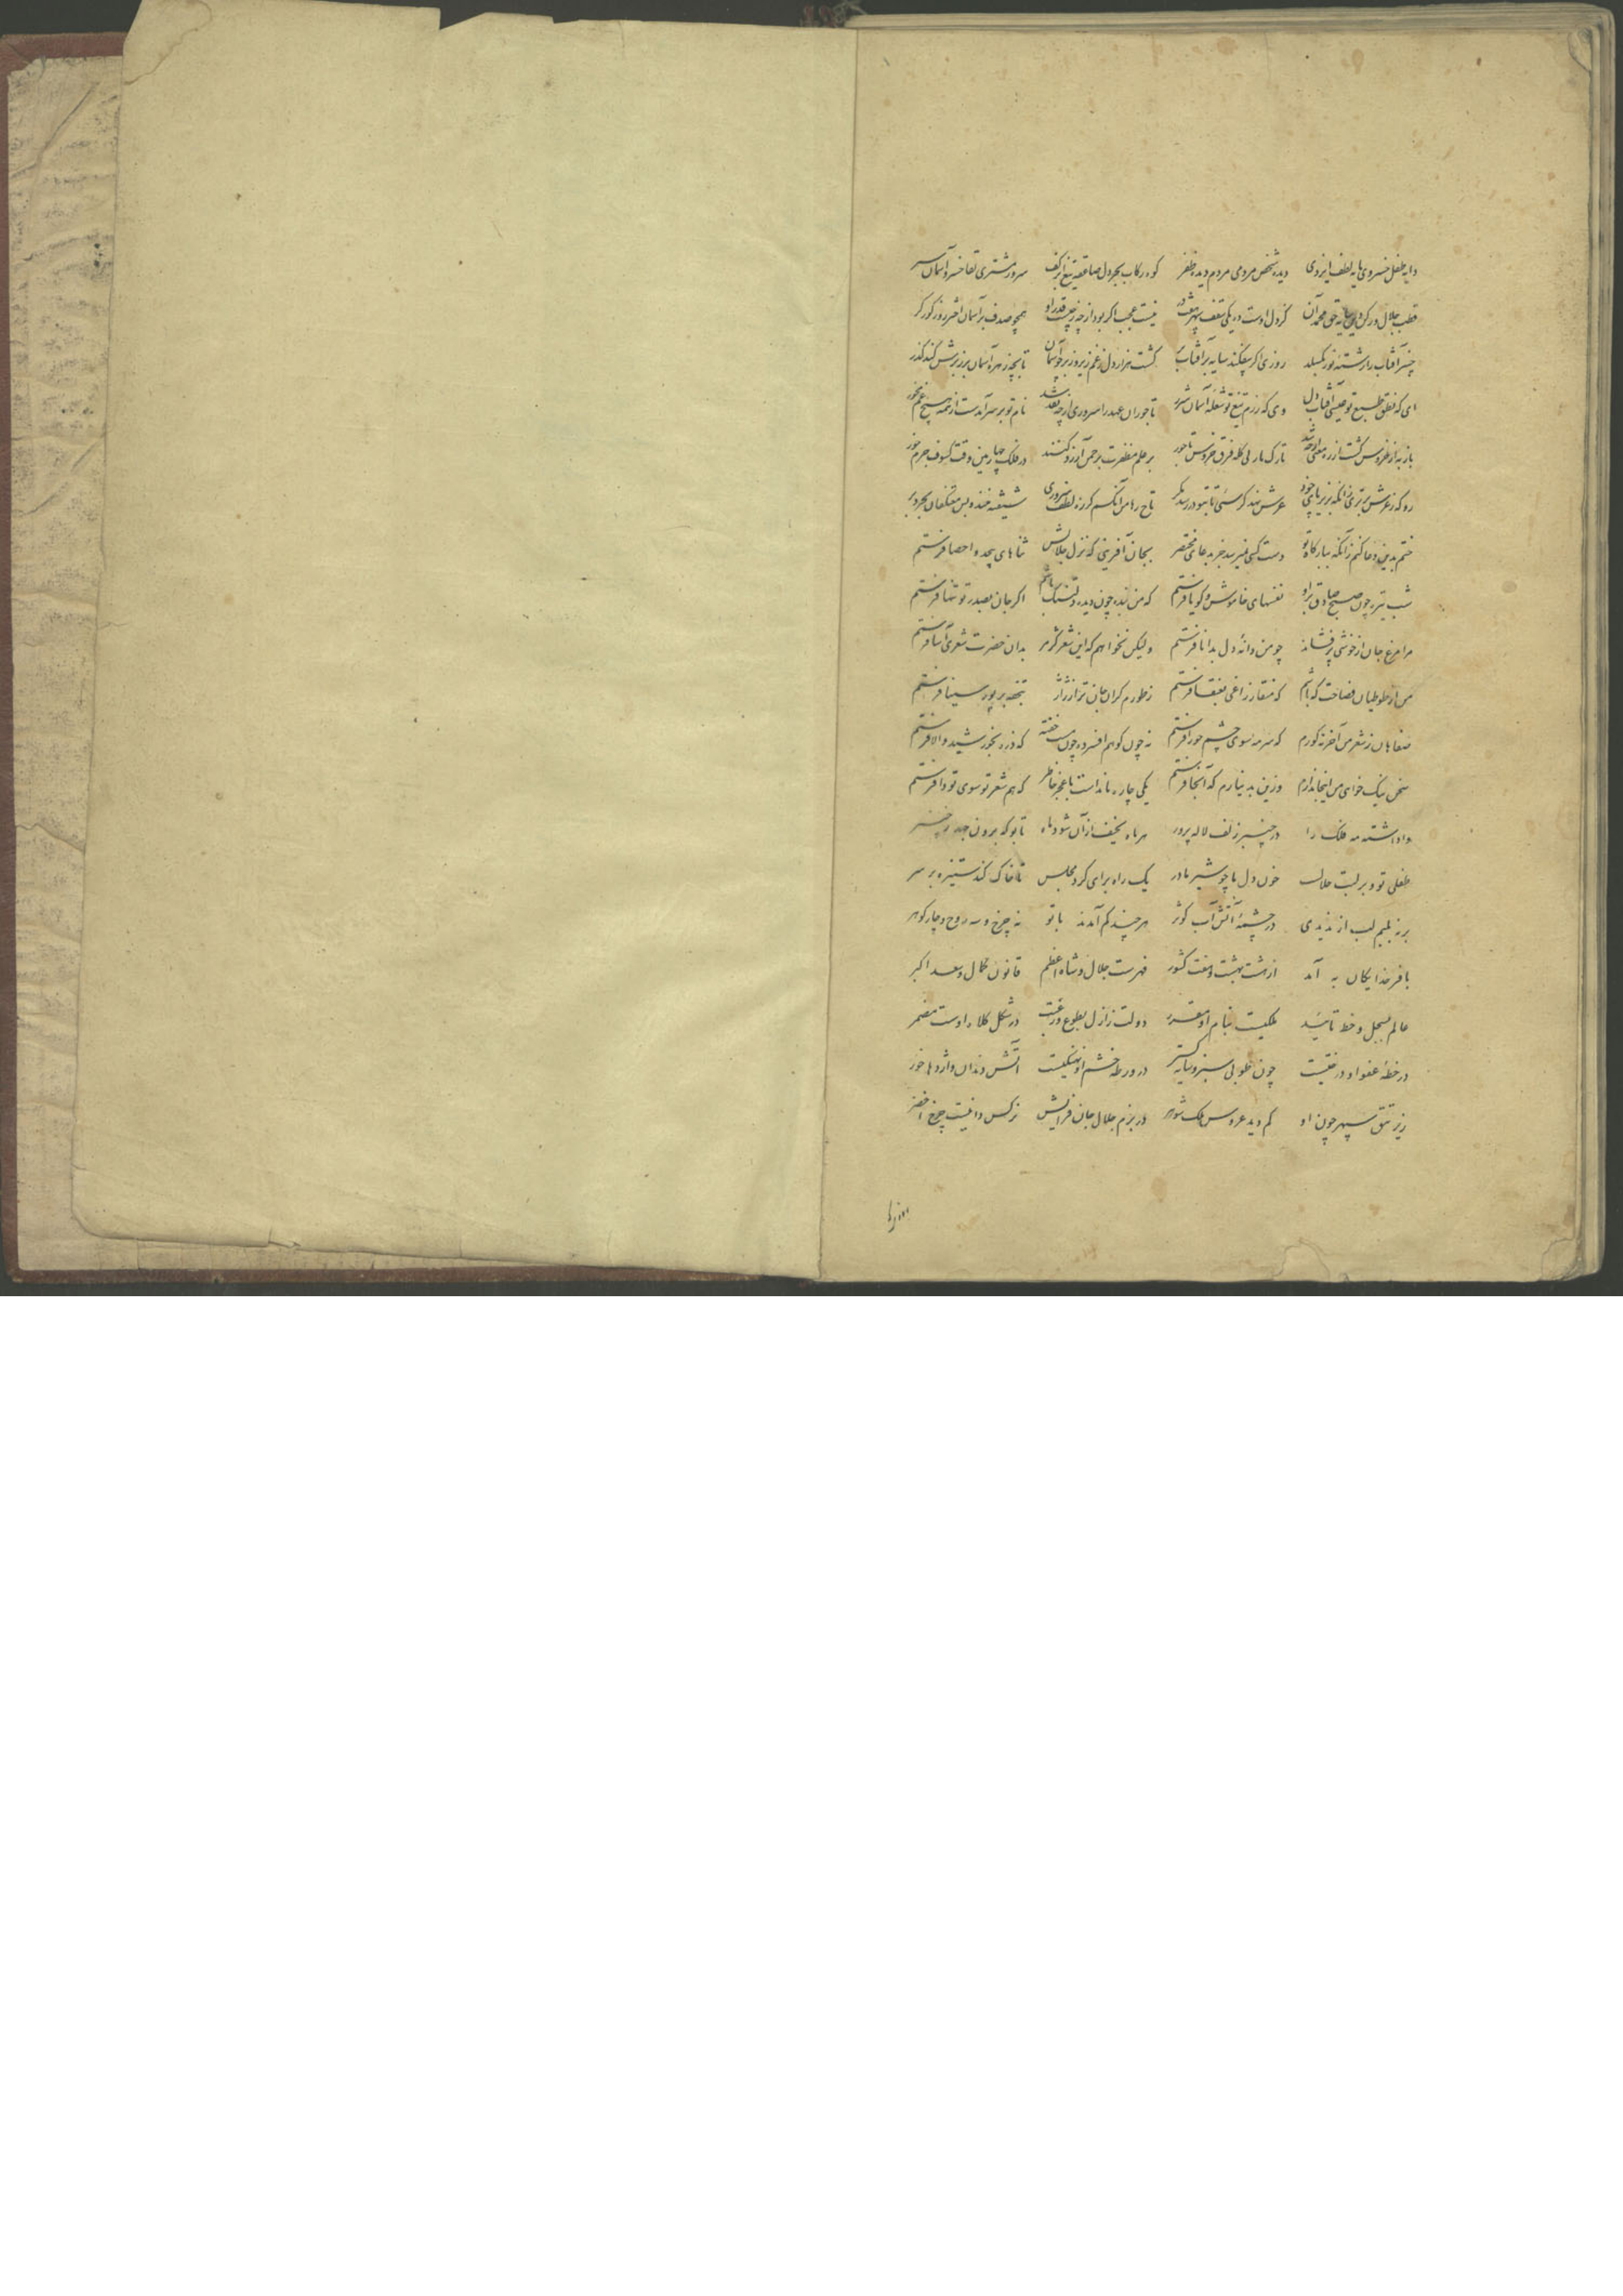 دایه طفل خسروی مایه لطف ایزدی دیده شخص مردمی مردم دیده ظفر کوه رکاب بحر دل صاعقه تیغ ابر کف سرور مشتری لقا خسرو آسمان سر
قطب جلال در کشای سایه حق محمد آن کز دل اوست در یکی سقف سپهر نیست عجب اگر بود از چه قدر او همچو صدف بر آسمان اختر روز کور کر
چنبر آفتاب را رشته نور بگسلد روزی اگر بیفکند سایه بر آفتاب کشت هزار دل ز غم زیر و زبر چو آسمان تا بچه زهره آسمان بر زبرش کند گذر
ای که نطق طبع تو عیسی آفتاب دل وی که رزم تیغ تو شعله آسمان شرر تاجوران عهد را سروری ارچه نقد شد نام تو بر سر آمدست از همه هیچ غم مخور
باز به از خروس گشت از ره معنی ارچه شد تارک باز بی کله فرق خروس تاجور بر علم مظفرت برجمن آرزو کنند در فلک چهارمین وقت کسوف جرم خور
رو که ز عرش برتری زانکه بزیر پای خود عرش نهد کرسئی تا بتو در رسد مگر تاج رضا من آنکسم کز ره لطف سروری شیشه خنده بس معتکفان بحر و بر
ختم بدین دعا کنم زانکه ببارگاه تو دست کسی نمیرسد جز بدعای مختصر بجان آفرینی که نزل جلالش ثناهای بیحد و احصا فرستم
شب تیره چون صبح صادق برو نفسهای خاموش و گویا فرستم که من بنده چون دیده دلتنگ باشم اگر جان بصدر تو تنها فرستم
مرا مرغ جان از خوشی پر فشاند چو من دانه دل بدانا فرستم ولیکن نخواهم که این شعر کژمژ بدان حضرت شعری آسا فرستم
من از طوطیان فصاحت که باشم که منقار زاغی بعنقا فرستم ز طورم گران جان تر از ژاژ تحفه بر پور سینا فرستم
صفاهان ز شعر من آخر نه کورم که سرمه سوی چشم حورا فرستم نه چون کوهم افسرده چون سنگ خفته که ذره بخورشید والا فرستم
سخن نیک خوای من اینجا ندارم وزین به نیارم که آنجا فرستم یکی چاره ماندست با عجز خاطر که هم شعر تو سوی تو وا فرستم
واداشته مه فلک را در چنبر زلف لاله پرور هر ماه نحیف ازآن شود ماه تا بو که برون جهد ز چنبر
طفلی تو و بر لبت حلالست خون دل ما چو شیر مادر یک راه برای گرد مجلس تا خاک کند ستیزه بر سر
بر نه بلبم لب ار ندیدی در چشمهٔ آتش آب کوثر هر چند کم آمدند با تو نه چرخ و سه روح و چار گوهر
با فر خدایگان به آمد از هشت بهشت و هفت کشور فهرست جلال و شاه اعظم قانون کمال و سعد اکبر
عالم بسجل و خط تایید ملکیست بنام او مقرر دولت ز ازل بطوع و رغبت در شکل کلاه اوست مضمر
در خطهٔ عفو او درختیست چون طوبی سبز و سایه گستر در ورطه خشم او نهنگیست آتش دندان و اژدها خور
زیر تتق سپهر چون او کم دید عروس ملک شوهر در بزم جلال جان فزایش نرگس دانیست چرخ اخضر